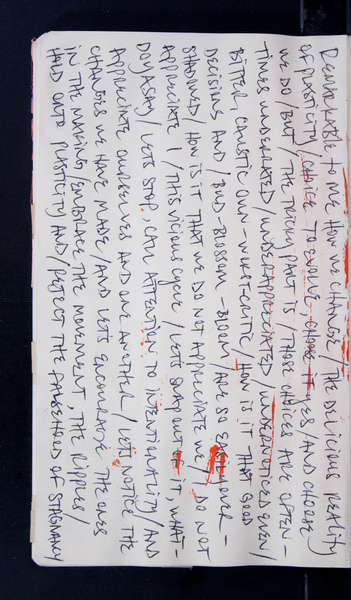 REMARKABLE TO ME HOW WE CHANGE / THE DELICIOUS REALITY
OF PLASTICITY / CHOICE TO EVOLVE, CHOOSE IT YES / AND CHOOSE
WE DO / BUT / THE TRICKY PART IS / THOSE CHOICES ARE OFTEN-
TIMES UNDERRATED / UNDERAPPRECIATED / UNDERNOTICED EVEN /
BITTER, CAUSTIC OWN-WORST-CRITIC / HOW IS IT THAT GOOD
DECISIONS AND / BUD-BLOSSOM-BLOOM / ARE SO EASILY OVER-
SHADOWED / HOW IS IT THAT WE DO NOT APPRECIATE WE / I DO NOT
APPRECIATE I / THIS VICIOUS CYCLE / LET'S SNAP OUT OF IT WHAT-
DOYASAY / LET'S STOP. CALL ATTENTION TO INTENTIONALITY / AND
APPRECIATE OURSELVES AND ONE ANOTHER / LET'S NOTICE THE
CHANGES WE HAVE MADE / AND LET'S ENCOURAGE THE ONES
IN THE MAKING, EMBRACE THE MOVEMENT, THE RIPPLES /
HOLD ONTO PLASTICITY AND / REJECT THE FALSEHOOD OF STAGNANCY